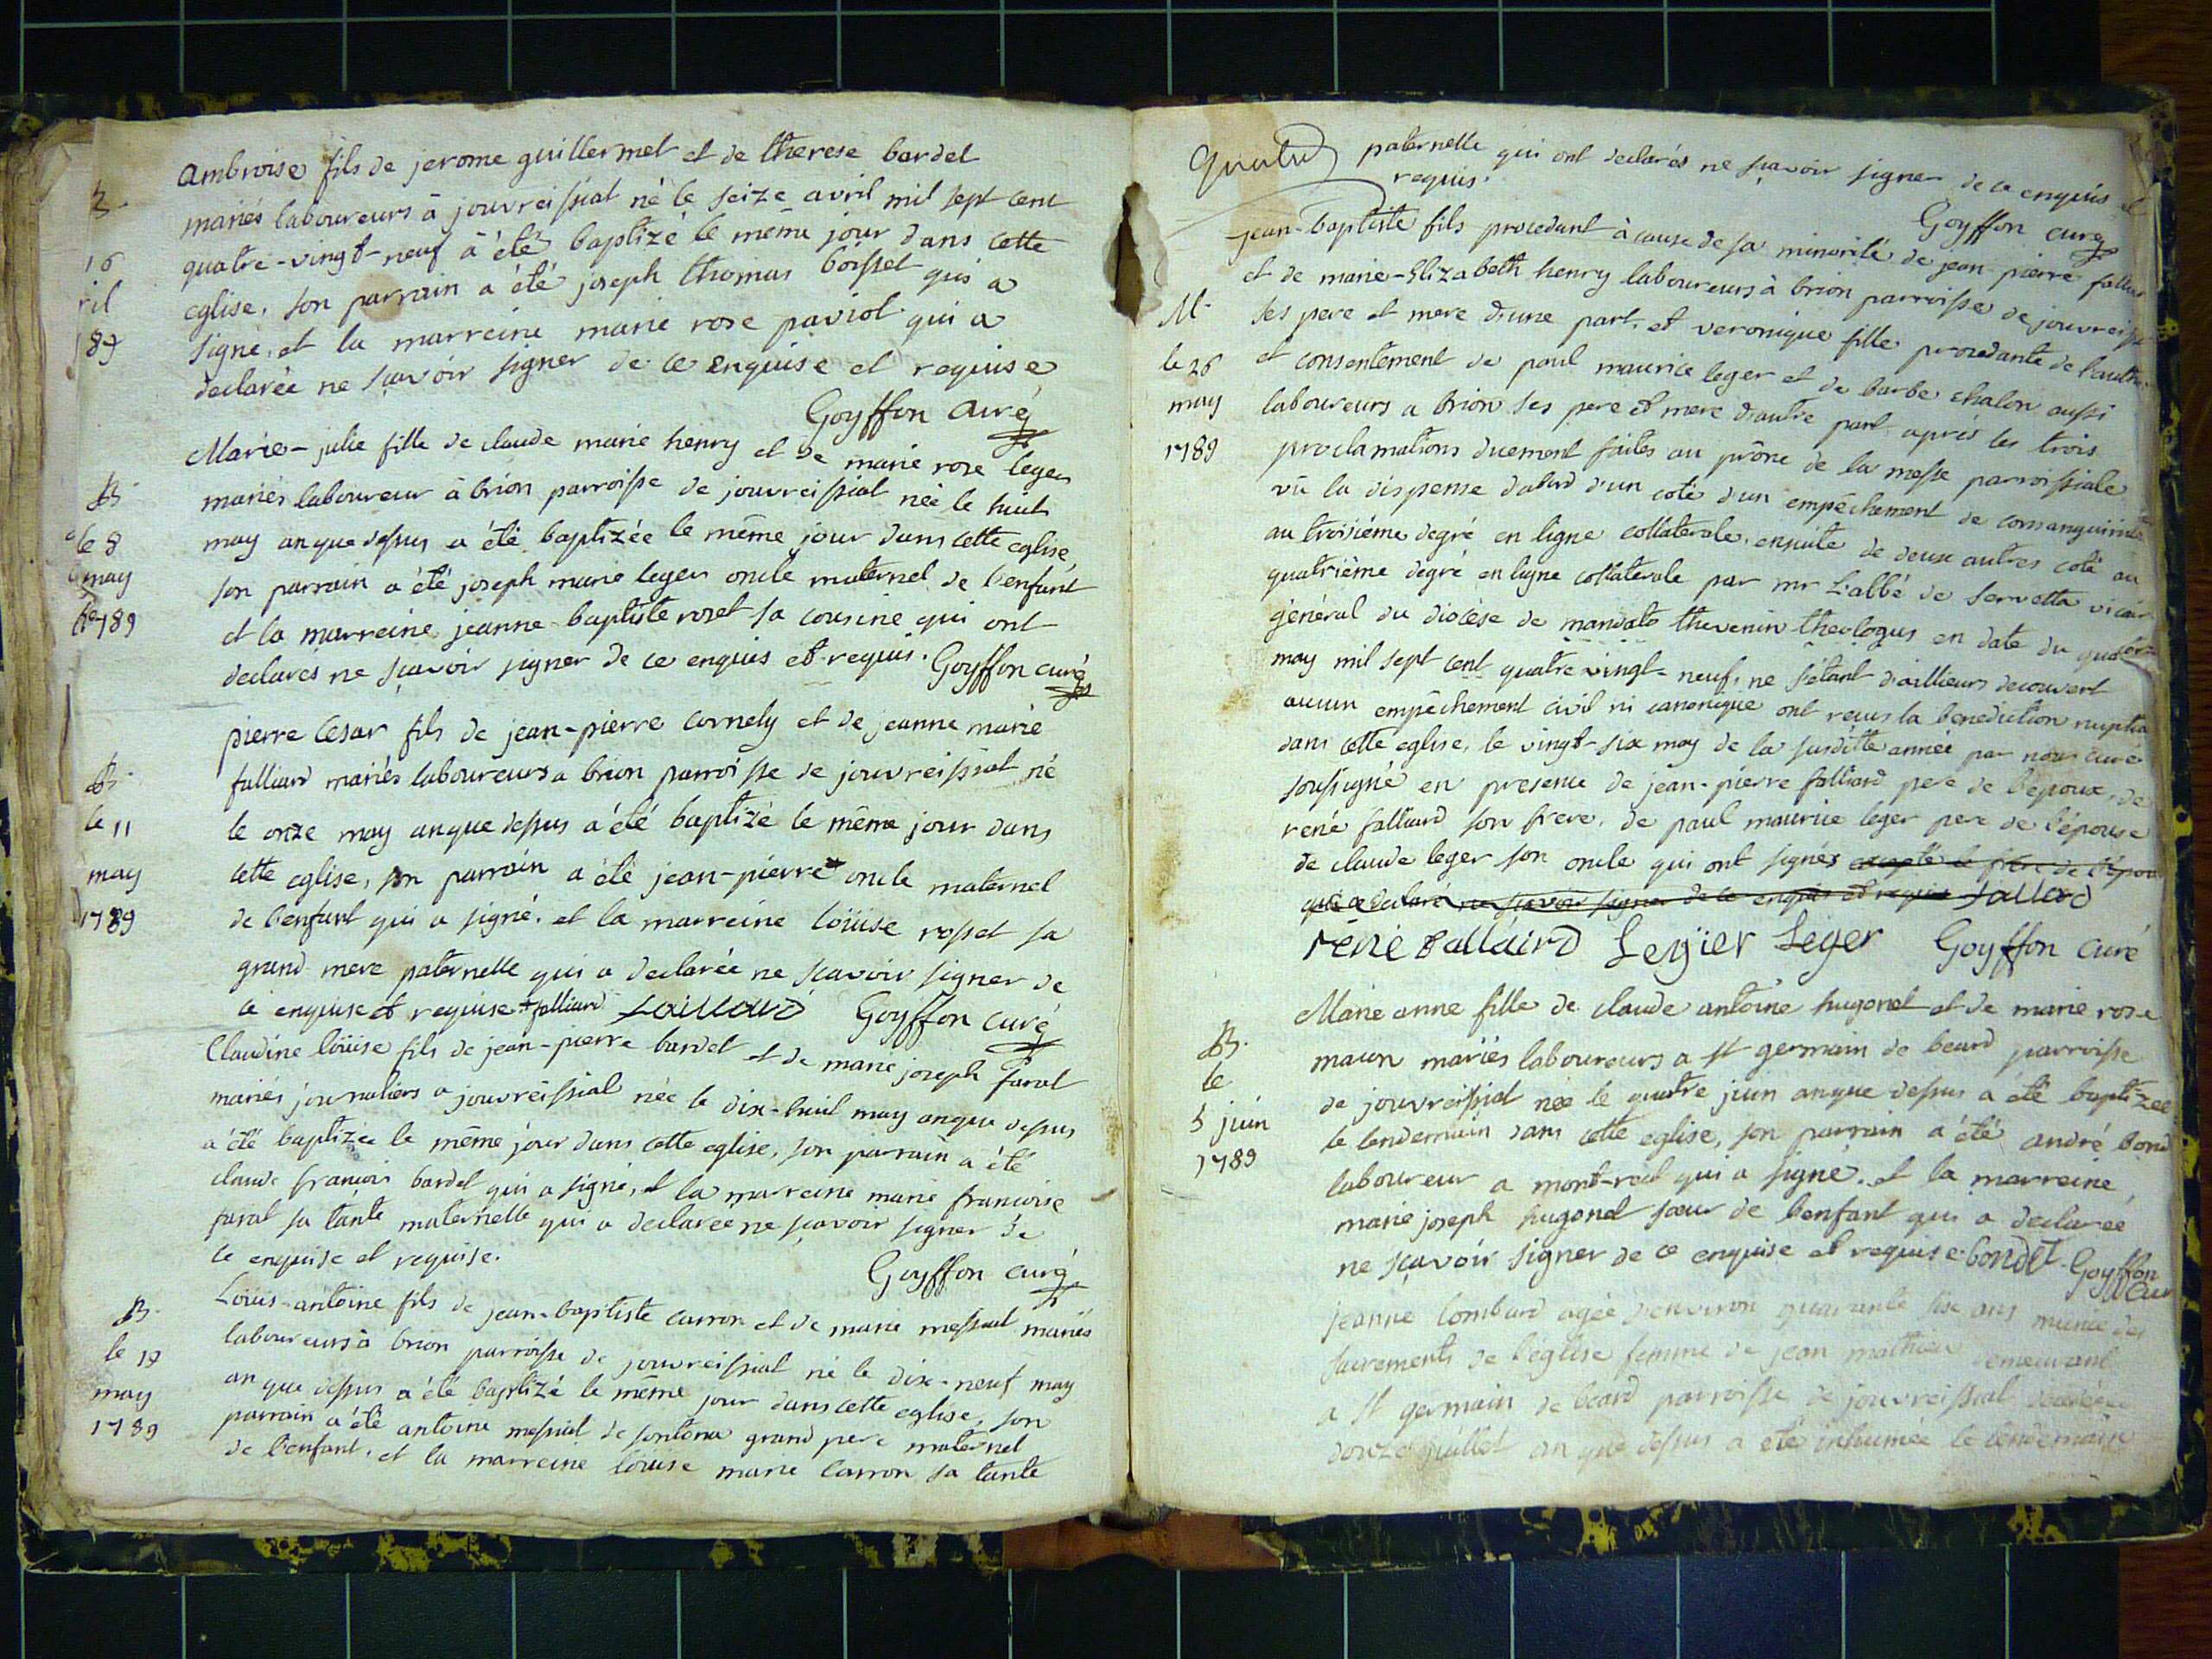 B.
16
ril
89
ambroise fils de jerome guillermet et de therese bardet
mariés laboureurs à jouvreissiat né le seize avril mil sept cent
quatre-vingt-neuf à été baptizé le même jour dans cette
eglise, son parrain a été joseph thomas boisset qui a
signé, et la marreine marie rose paviot qui a
declarée ne sçavoir signer de ce enquise et requise
Goyffon curé
B.
le 8
may
1789
Marie-julie fille de claude marie henry et de marie rose leger
mariés laboureur à brion parroisse de jouvreissiat née le huit
may an que dessus a été baptizée le même jour dans cette eglise,
son parrain a été joseph marie leger oncle maternel de l'enfant
et la marreine jeanne-baptiste roset sa cousine qui ont
declarés ne sçavoir signer de ce enquis et requis. Goyffon curé
B.
le 11
may
1789
pierre cesar fils de jean-pierre cornely et de jeanne marie
falliard mariés laboureurs a brion parroisse de jouvreissiat né
le onze may an que dessus a été baptizé le même jour dans
cette eglise, son parrain a été jean-pierre + oncle maternel
de l'enfant qui a signé. et la marreine loüise rosset sa
grand mere paternelle qui a declarée ne sçavoir signer de
ce enquise et requise + falliard failliard Goyffon curé
Claudine loüise fils de jean-pierre bardet et de marie joseph favat
mariés journaliers a jouvreissiat née le dix-huit may an que dessus
a été baptizée le même jour dans cette eglise, son parrain a été
claude francois bardet qui a signé, et la marreine marie francoise
favat sa tante maternelle qui a declarée ne sçavoir signer de
ce enquise et requise.
Goyffon curé
B.
le 19
may
1789
Loüis-antoine fils de jean-baptiste carron et de marie messiat mariés
laboureurs à brion parroisse de jouvreissiat né le dix-neuf may
an que dessus a été baptizé le même jour dans cette eglise, son
parrain a été antoine messiat de grand pere maternel
de l'enfant, et la marreine loüise marie carron sa tante
paternelle qui ont declarés ne sçavoir signer de ce enquis et
requis.
Goyffon curé
M.
le 26
may
1789
jean-baptiste fils procedant à cause de sa minorité de jean-pierre
et de marie-Elizabeth henry laboureurs à brion parroisse de
ses pere et mere d'une part, et veronique fille procedante de l'authorité
et consentement de paul maurice leger et de barbe chalon aussi
laboureurs a brion ses pere et mere d'autre part après les trois
proclamations duement faites au prône de la messe parroissiale
vû la dispense d'abord d'un coté d'un empêchement de consanguinité
au troisiéme degré en ligne collaterale, ensuite de deux autres coté au
quatrième degré en ligne collaterale par mr L'abbé de servetta vicaire
général du diocèse de mandato thevenin theologus en date du
may mil sept cent quatre vingt-neuf, ne s'étant d'ailleurs decouvert
aucun empêchement civil ni canonique ont reçus la benediction
dans cette eglise, le vingt-six may de la susditte année par nous curé
soussigné en presence de jean-pierre falliard pere de l'epoux, de
rené falliard son frere, de paul maurice leger pere de l'épouse
de claude leger son oncle qui ont signés excepté le frere de l'epoux
qui a declaré ne sçavoir signer de ce enquis et requis fallard
rénè Fallaird Legïer Leger Goyffon curé
B.
le
5 juin
1789
Marie anne fille de claude antoine hugonet et de marie rose
macon mariés laboureurs a st germain de beard parroisse
de jouvreissiat née le quatre juin an que dessus a été baptizée
le lendemain dans cette eglise, son parrain a été andré
laboureur a mont-real qui a signé. et la marreine
marie joseph hugonet sœur de l'enfant qui a declarée
ne sçavoir signer de ce enquise et requise. bondet. Goyffon
cur
jeanne lombard agée d'environ quarante six ans munie des
sacrements de l'église femme de jean mathieu demeurant
a st germain de beard parroisse de jouvreissiat
douze juillet an que dessus a été inhumée le lendemain